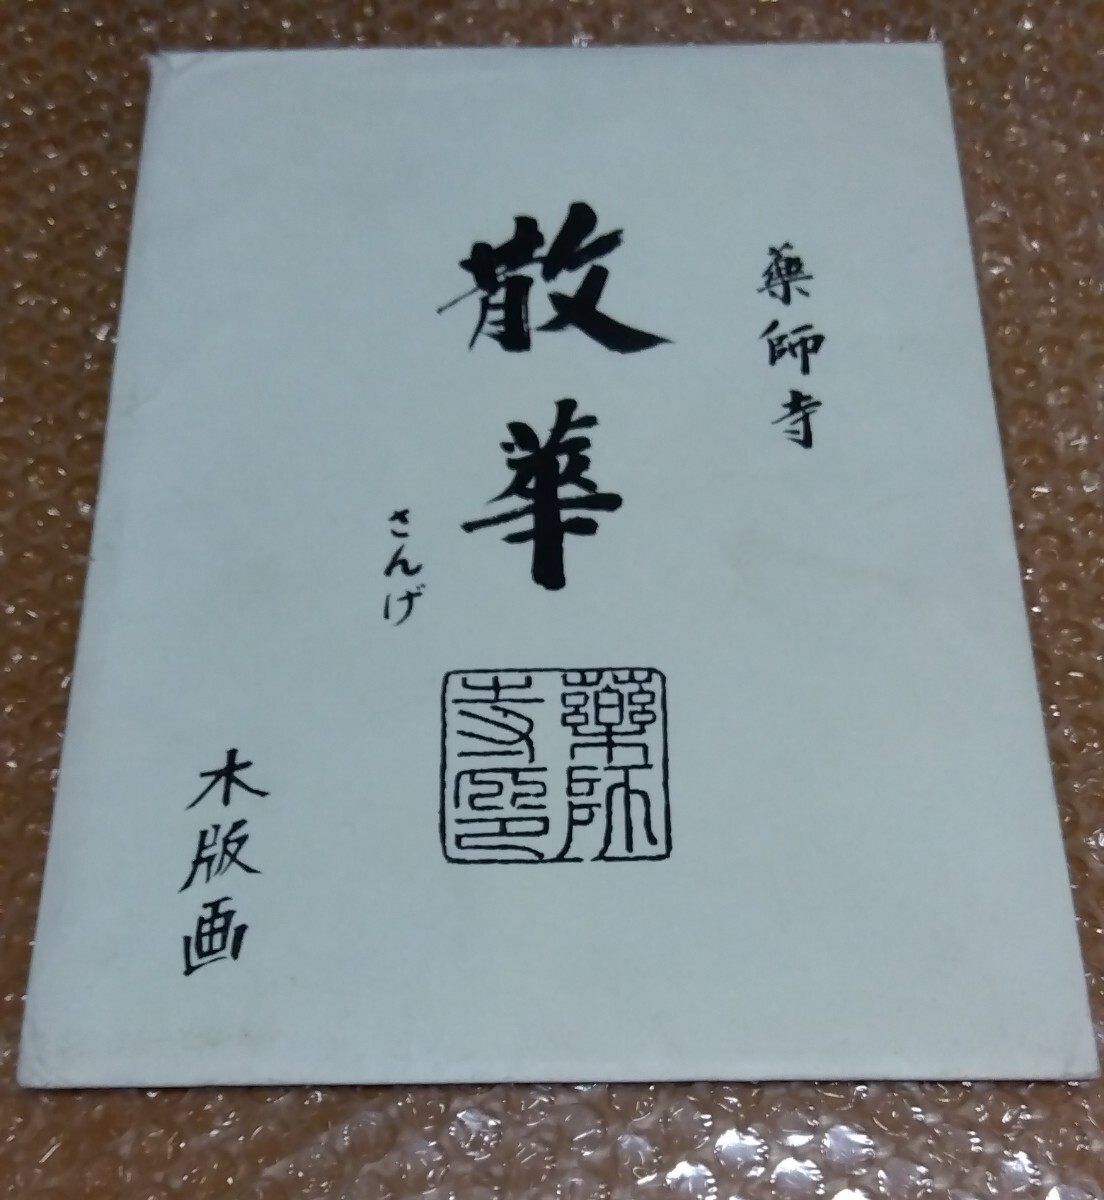 藥師寺
散華
さんげ
藥師寺印
木版画